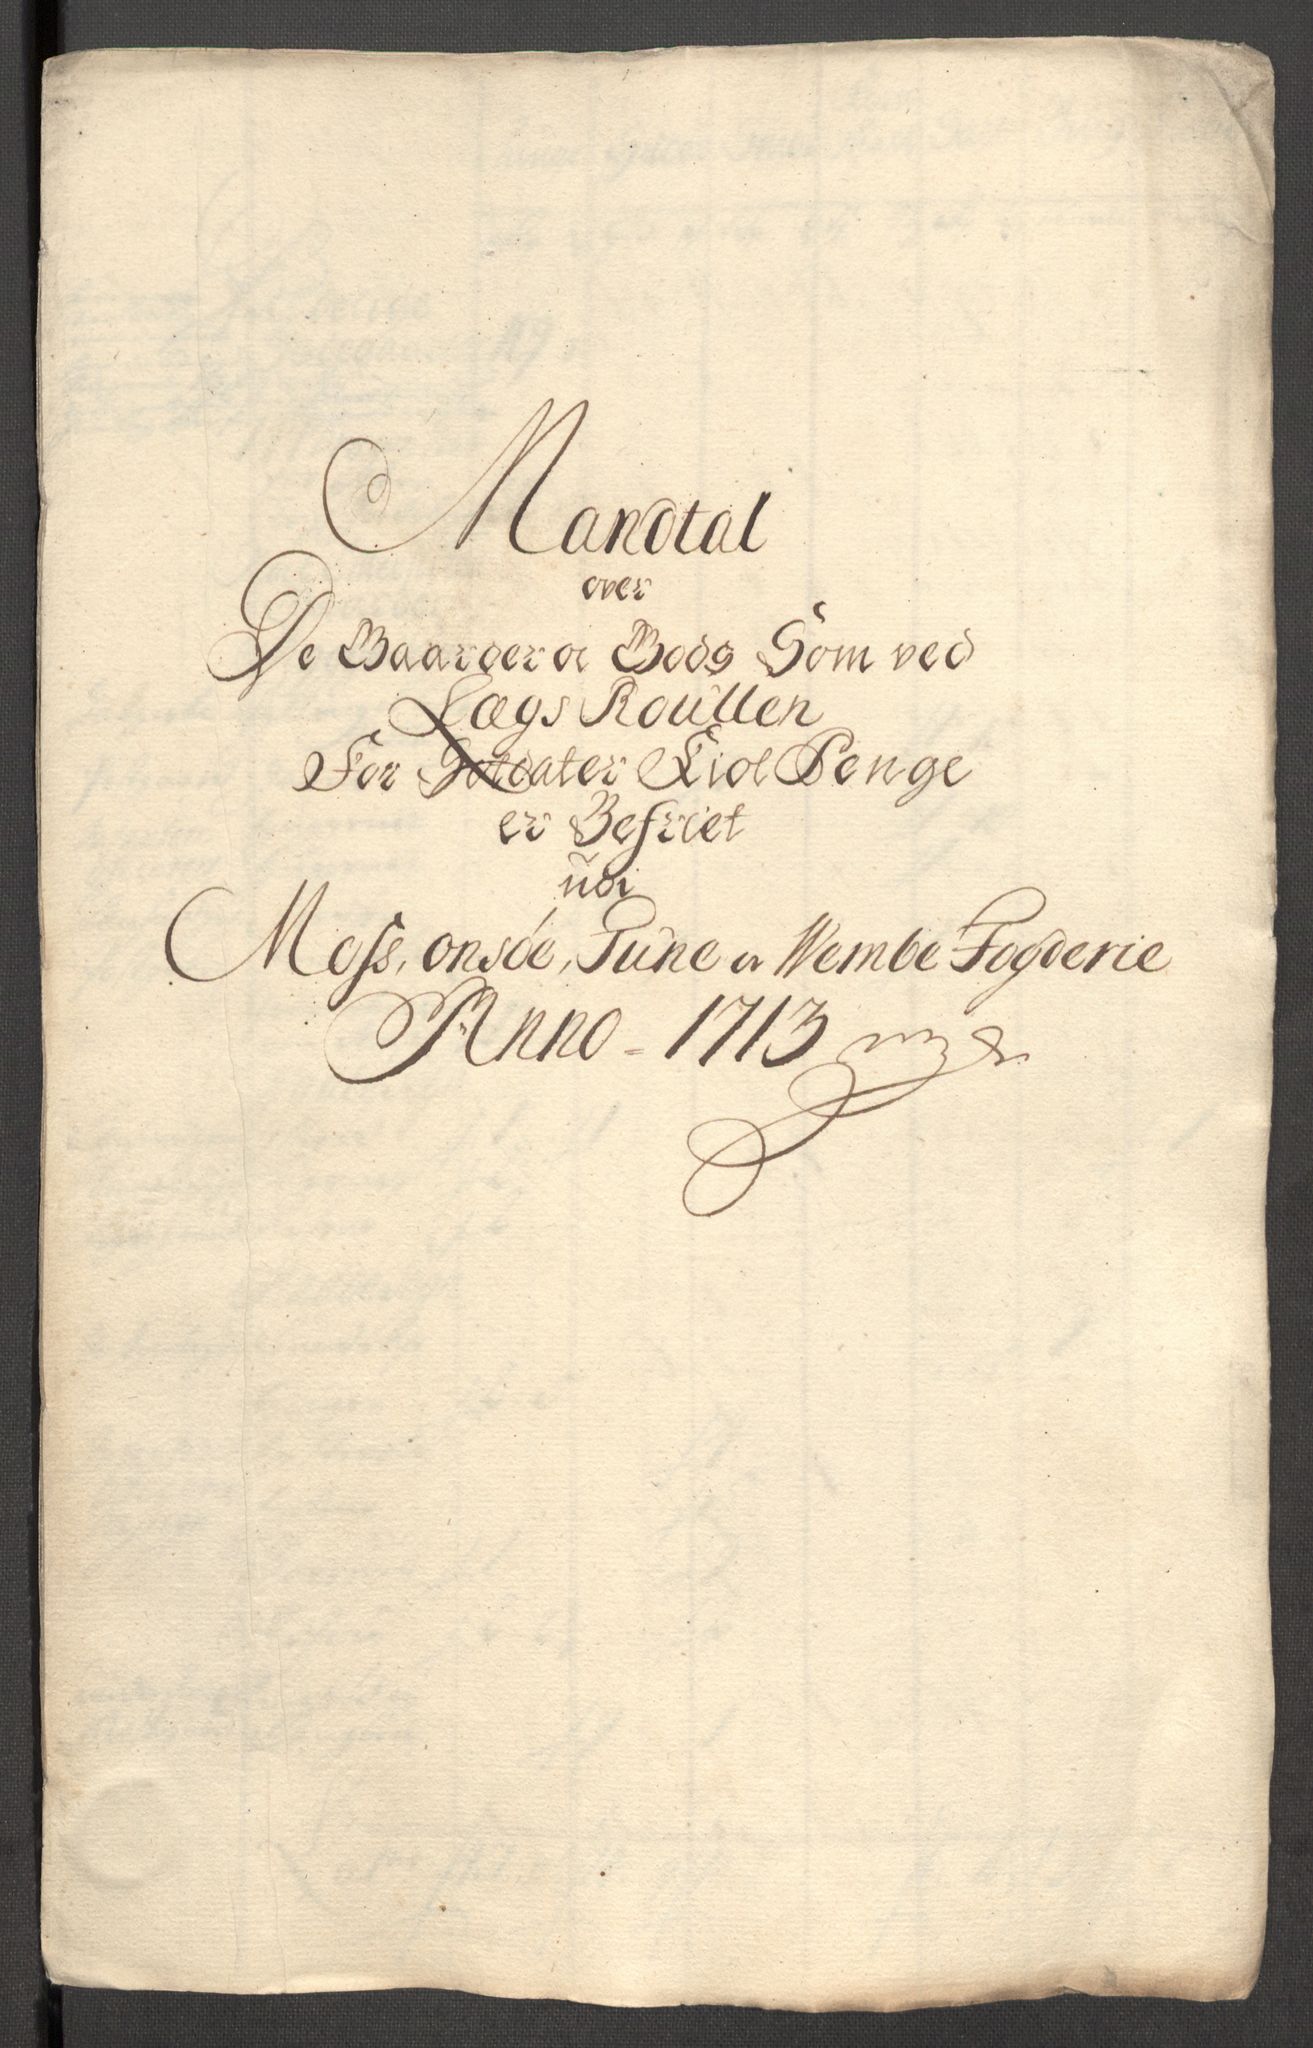 Mandtal
over
De Gaarder oc Gods Som ved
Lægs Roullen
For Soldater Kiol Penge
er Befriet
udi
Moss, onsöe, Tune oc Wembe Fogderie
Anno - 1713